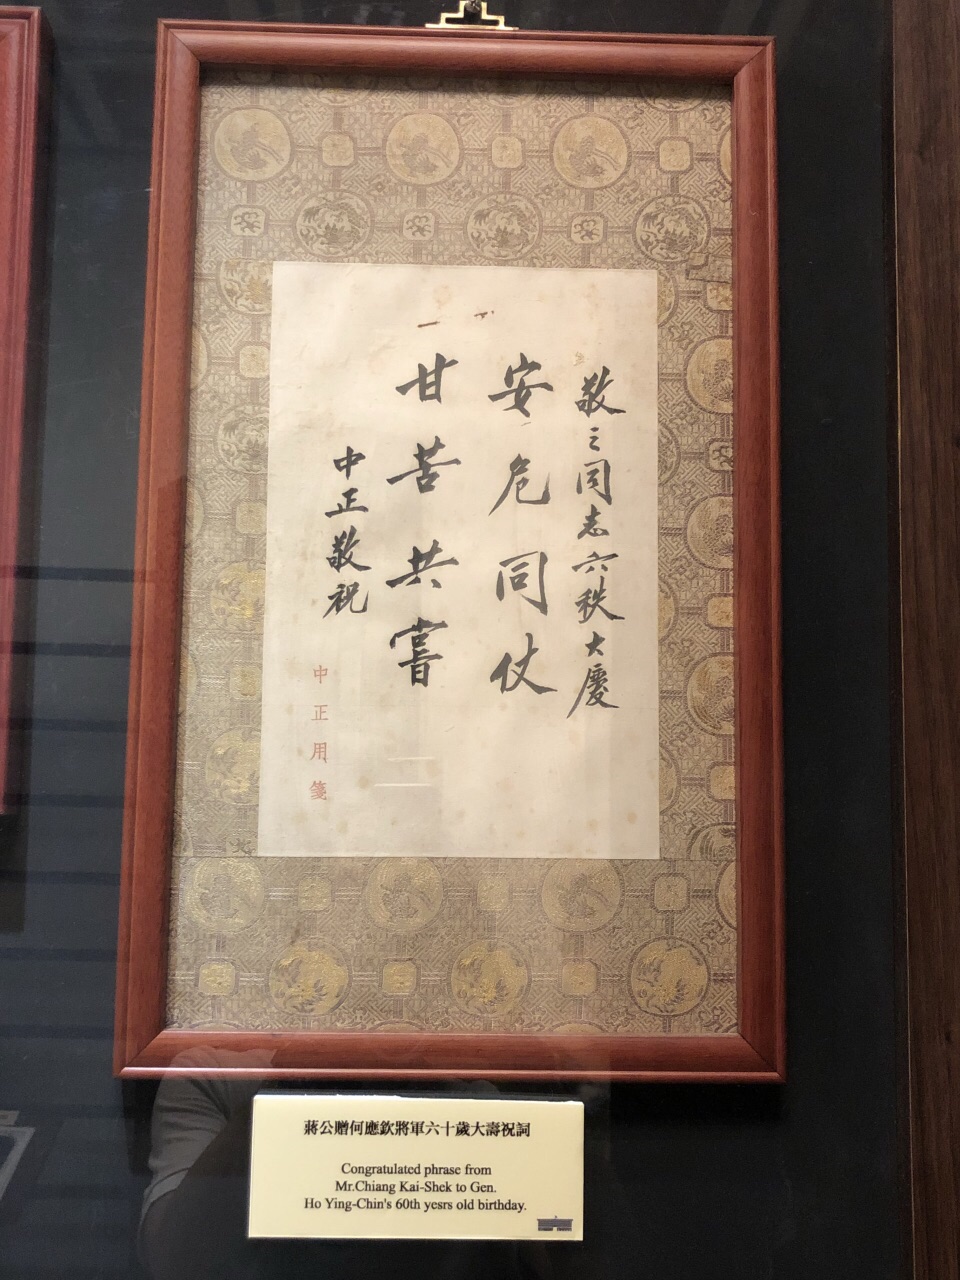 敬之同志六秩大慶
安危同仗
甘苦共嘗
中正敬祝
中正用箋
蔣公贈何應欽將軍六十歲大壽祝詞
Congratulated phrase from
Mr.Chiang Kai-Shek to Gen.
Ho Ying-Chin's 60th yesrs old birthday.